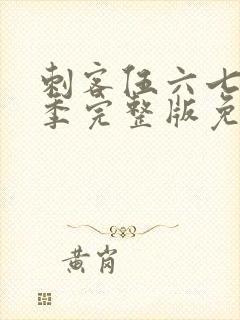 刺客伍六七
季完整版免
黄岗